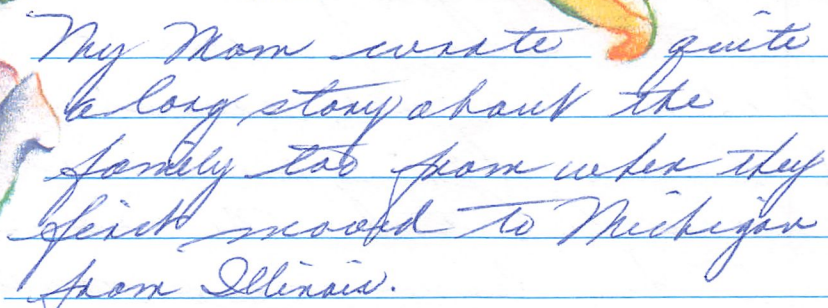 My Mom wrote quite
a long story about the
family too from when they
first moved to Michigan
from Illinois.